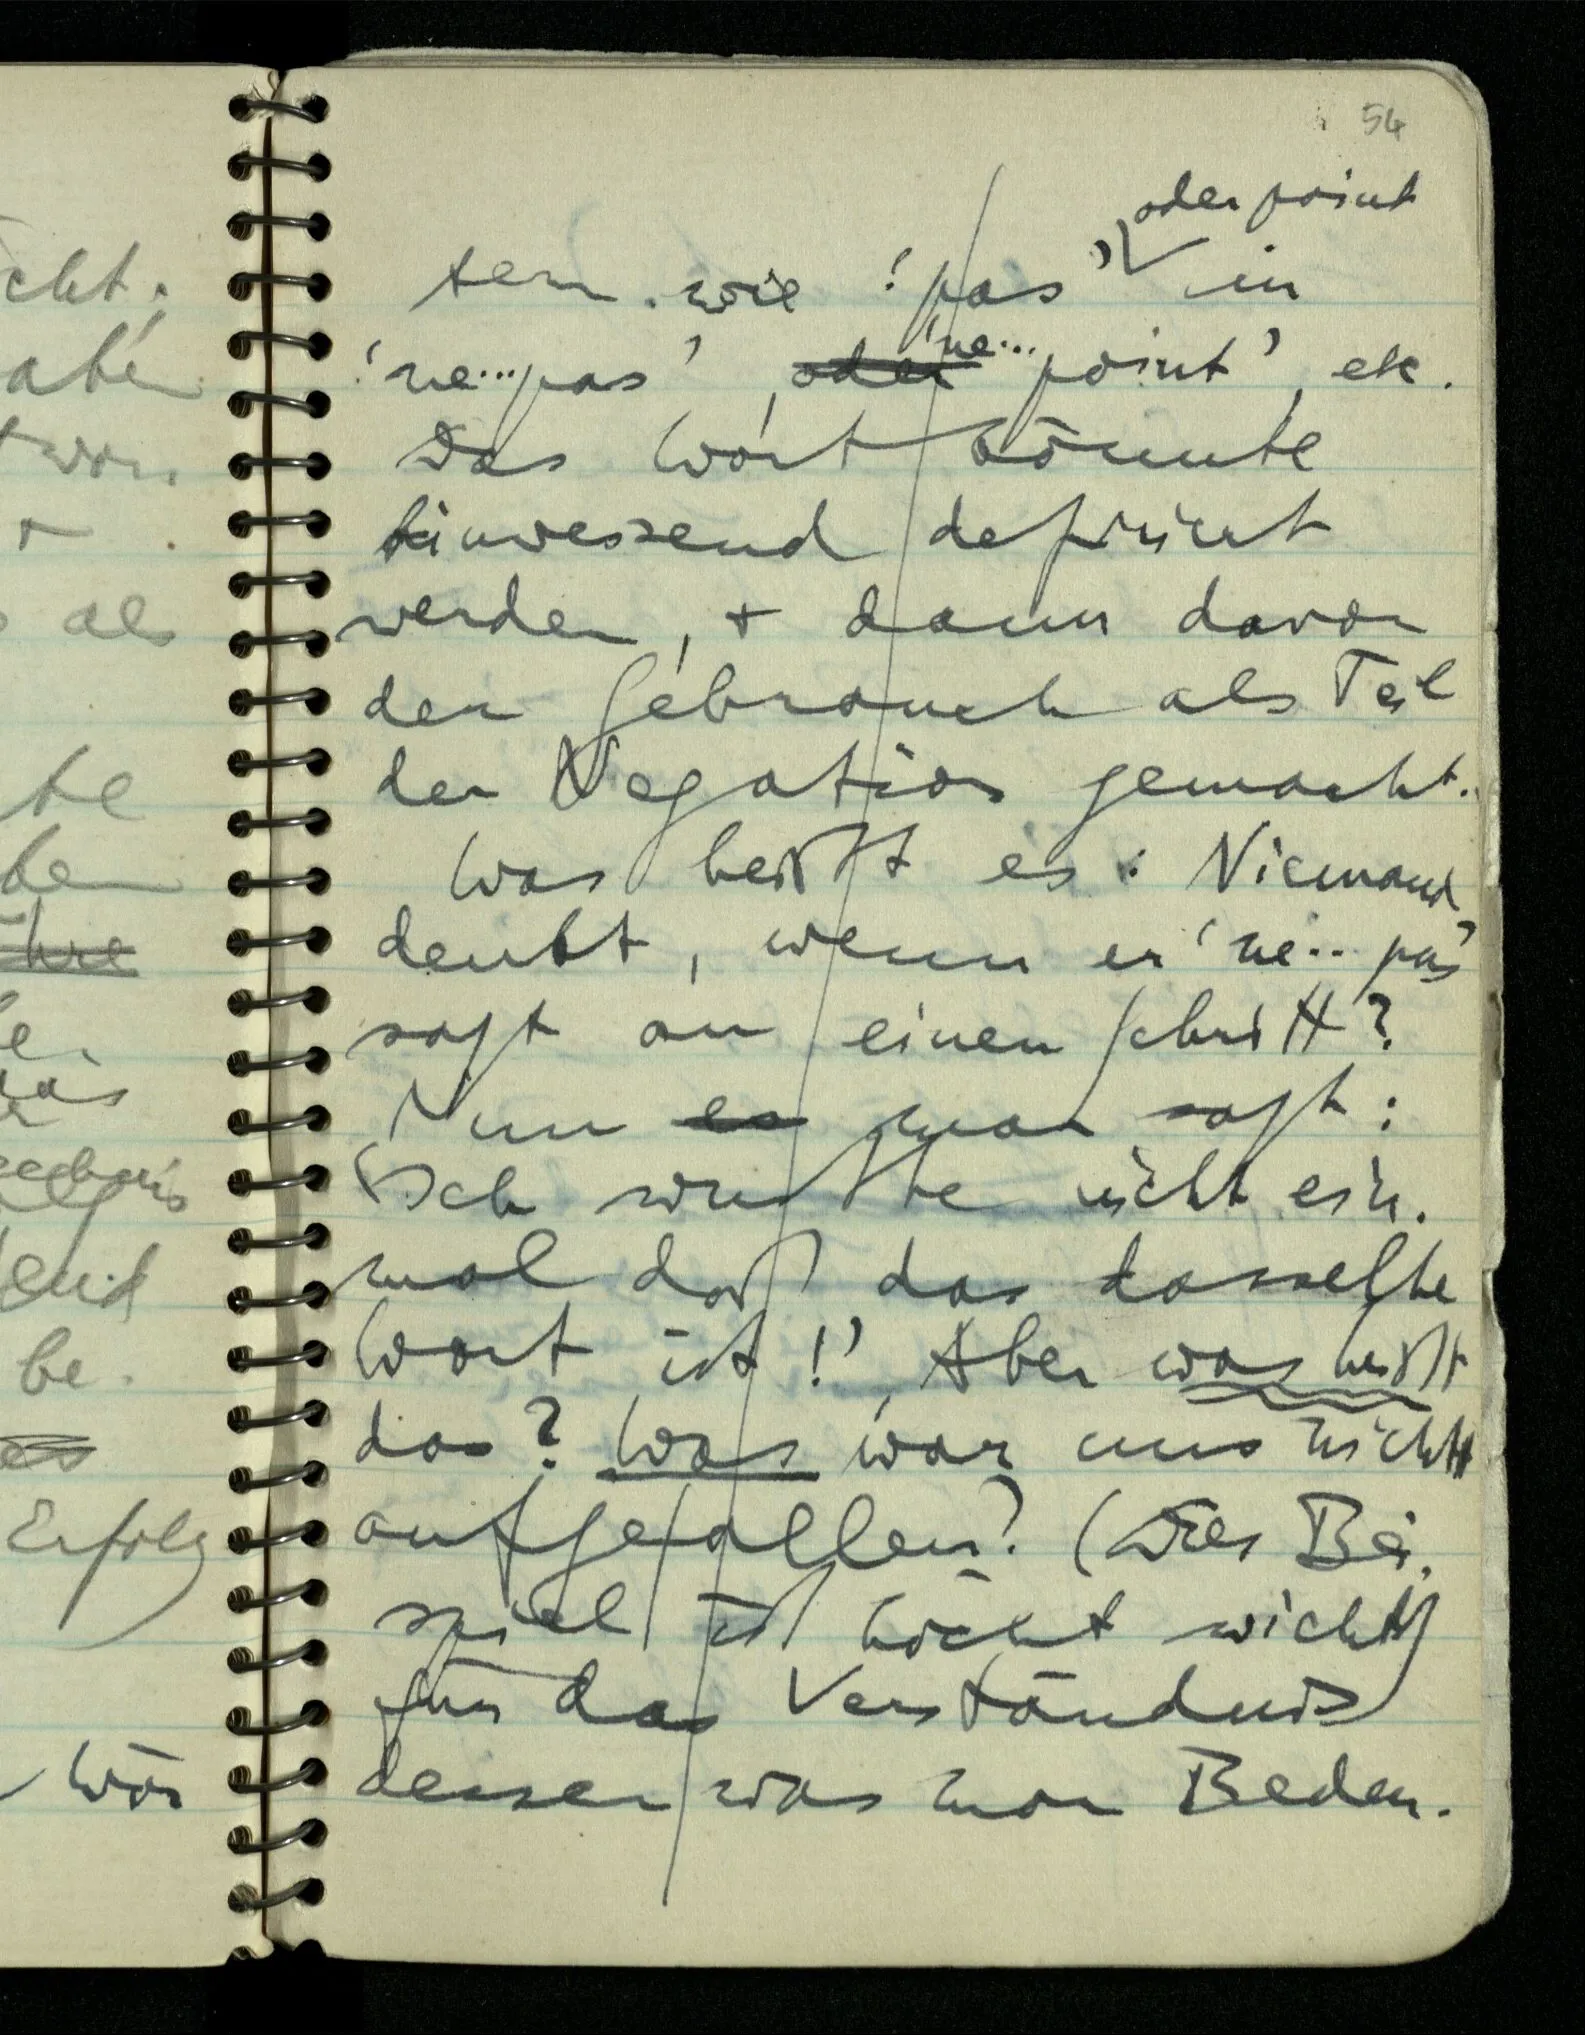 54
oder point
tern. wie 'pas' in
'ne...pas', oder 'ne... point', etc.
Das Wort könnte
hinweisend definiert
werden, + dann davon
der Gebrauch als Teil
der Negation gemacht.
Was heißt es: Niemand
denkt, wenn er 'ne... pas'
sagt an einen Schritt?
Nun es man sagt:
'Ich wußte nicht ein-
mal daß das dasselbe
Wort ist!' Aber was heißt
das? Was war uns nicht
aufgefallen? (Dies Bei-
spiel ist höchst wichtig
für das Verständnis
dessen was man Bedeu-
cht.
als
te
be.
Erfolg
Wör